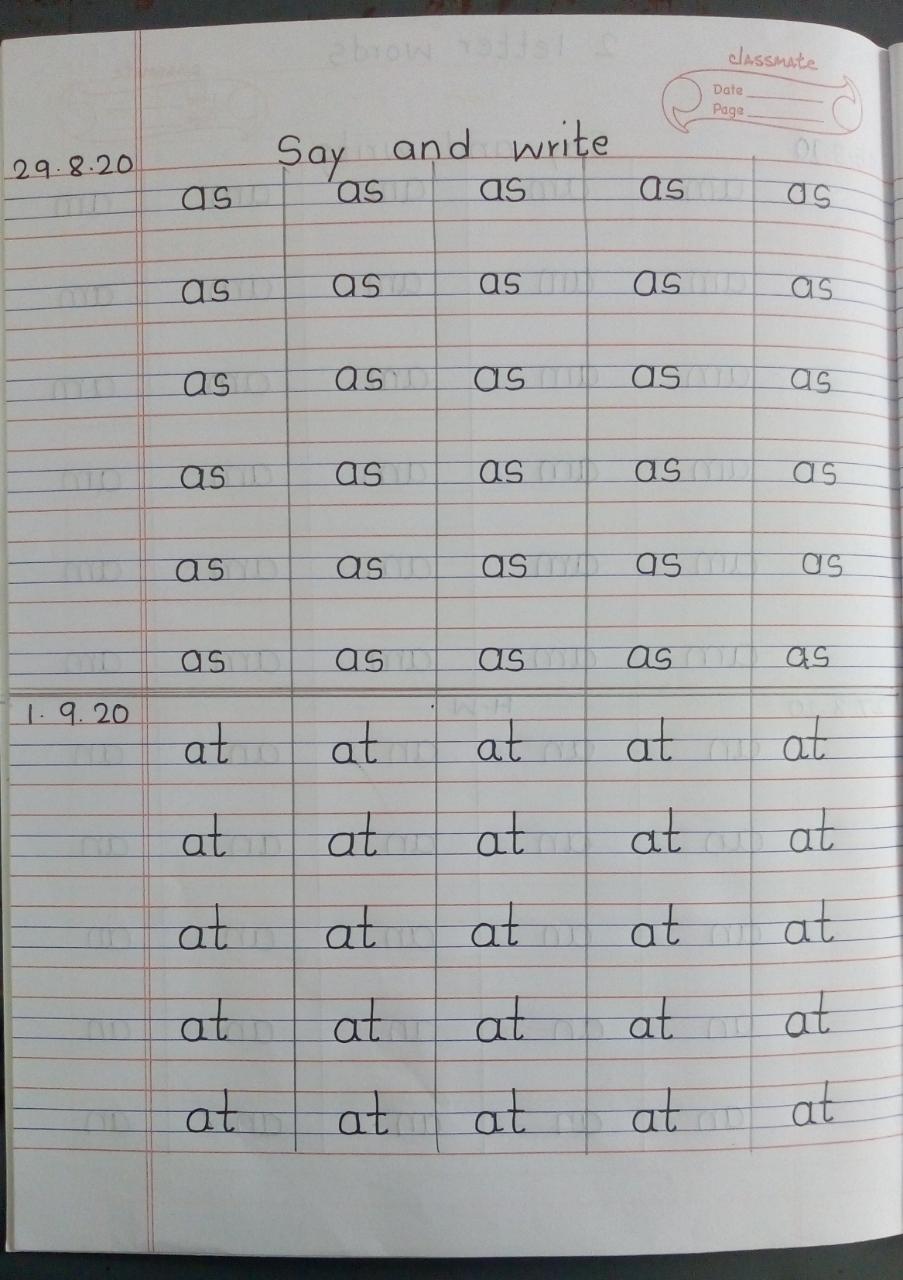 classmate
Date
Page
Say and write
29.8.20
as as as as as
as as as as as
as as as as as
as as as as as
as as as as as
as as as as as
1.9.20
at at at at at
at at at at at
at at at at at
at at at at at
at at at at at